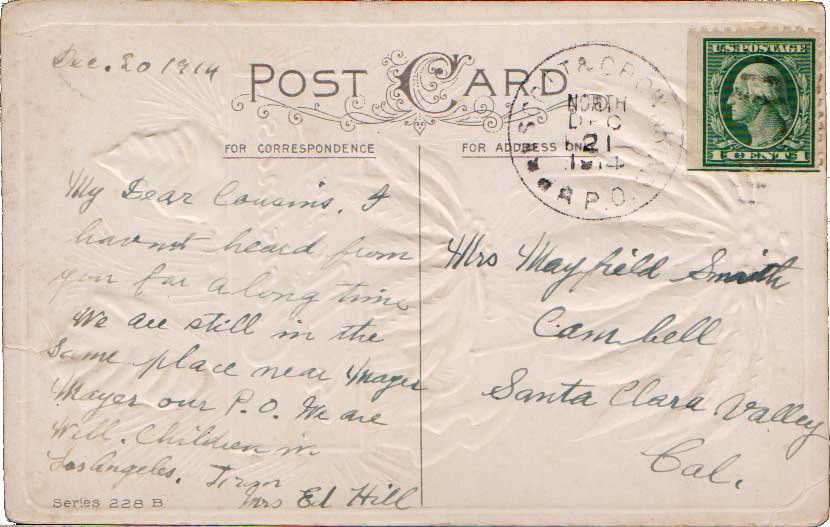 Dec. 20 1914
POST CARD
FOR CORRESPONDENCE
FOR ADDRESS ONLY
U.S. POSTAGE
1 CENT 1
NORTH
DEC
21
1914
R.P.O.
My Dear Cousins. I
havnt heard from
you for a long time
We are still in the
Same place near Mayer
Mayer our P.O. We are
Well. Children in
Los Angeles.
Mrs Ed Hill
Mrs Mayfield Smith
Cambell
Santa Clara Valley
Cal.
Series 228 B